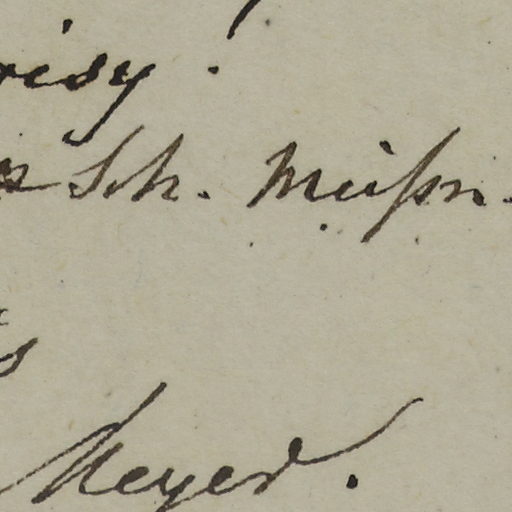 risy!
Sch. Meißn.
s
Meyer.